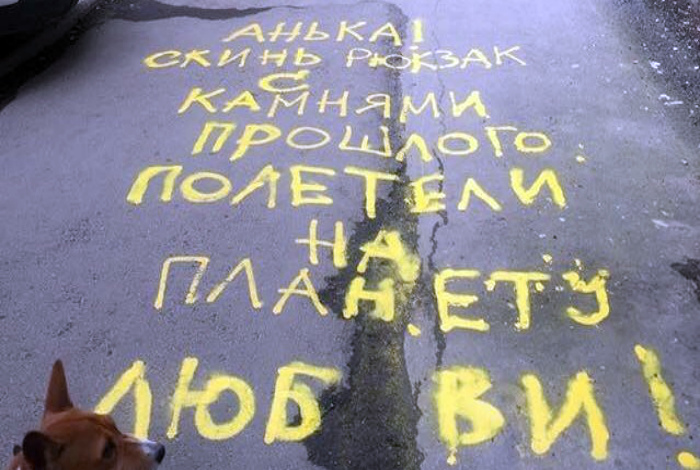 АНЬКА!
СКИНЬ РЮКЗАК
С
КАМНЯМИ
ПРОШЛОГО.
ПОЛЕТЕЛИ
НА
ПЛАНЕТУ
ЛЮБВИ!